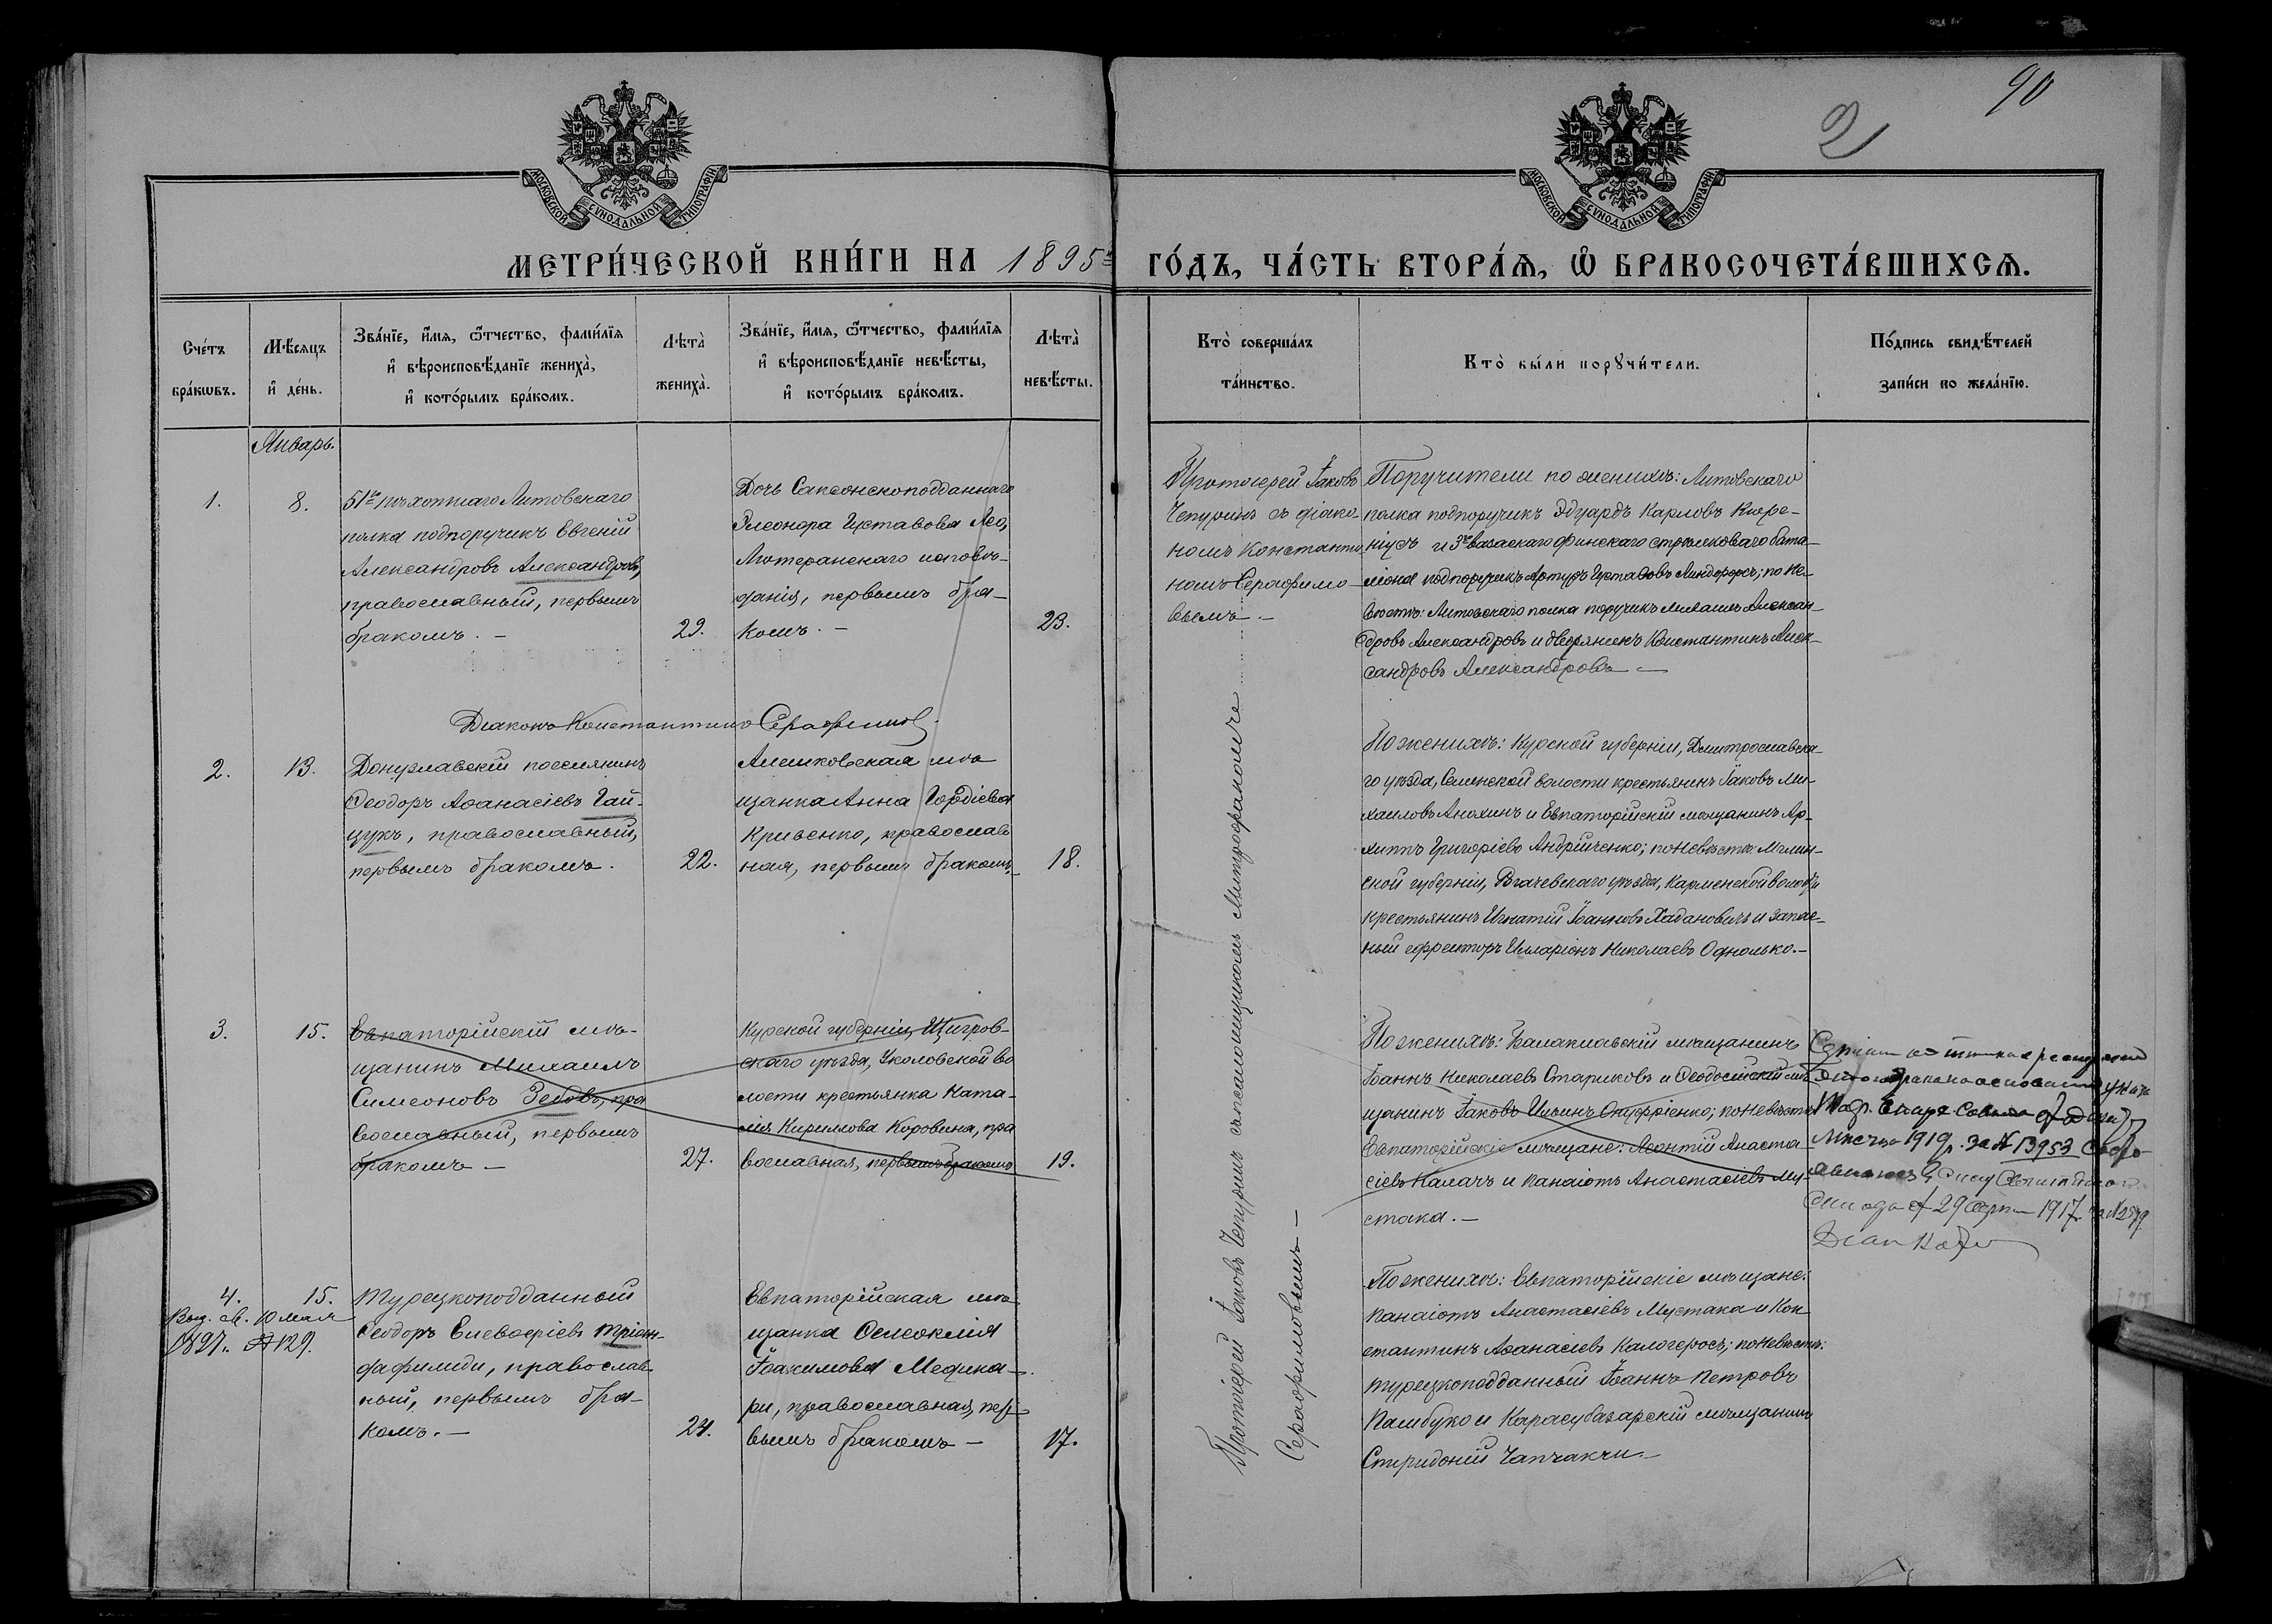 90
2
МОСКОВСКОЙ СУНОДАЛЬНОЙ ТИПОГРАФІИ
МОСКОВСКОЙ СУНОДАЛЬНОЙ ТИПОГРАФІИ
МЕТРИ́ЧЕСКОЙ КНИ́ГИ НА 1895й
ГО́ДЪ, ЧА́СТЬ ВТОРА́Ѧ, Ѡ҆ БРАКОСОЧЕТА́ВШИХСѦ.
Сче́тъ
бра́кѡвъ.
Мѣ́сяцъ
и҆ де́нь.
Зва́нїе, и҆́мя, ѻ҆́тчество, фами́лїя
и҆ вѣроисповѣ́данїе жениха̀,
и҆ кото́рымъ бра́комъ.
Лѣта̀
жениха̀.
Зва́нїе, и҆́мя, ѻ҆́тчество, фами́лїя
и҆ вѣроисповѣ́данїе невѣ́сты,
и҆ кото́рымъ бра́комъ.
Лѣта̀
невѣ́сты.
Кто̀ соверша́лъ
та́инство.
Кто̀ бы́ли порꙋчи́тели.
По́дпись свидѣ́телей
запи́си по жела́нїю.
Январь.
1.
8.
51го пѣхотнаго Литовскаго
полка подпоручикъ Евгеній
Александровъ Александровъ,
православный, первымъ
бракомъ. —
29.
Дочь Саксонскоподданнаго
Элеонора Густавова Лео,
Лютеранскаго исповѣ-
данія, первымъ бра-
комъ. —
23.
Протоіерей Іаковъ
Чепуринъ съ діако-
номъ Константи-
номъ Серафимо-
вымъ. —
Поручители по женихѣ: Литовскаго
полка подпоручикъ Эдуардъ Карловъ Кюре-
ніусъ и 3го Вазаскаго Финскаго стрѣлковаго бата-
ліона подпоручикъ Артуръ Густавовъ Линдфорсъ; по не-
вѣстѣ: Литовскаго полка поручикъ Михаилъ Алексан-
дровъ Александровъ и дворянинъ Константинъ Алек-
сандровъ Александровъ —
Діаконъ Константинъ Серафимовъ.
2.
13.
Донузлавскій поселянинъ
Ѳеодоръ Аѳанасіевъ Гай-
цукъ, православный,
первымъ бракомъ.
22.
Алешковская мѣ-
щанка Анна Гордіева
Кривенко, православ
ная, первымъ бракомъ. —
18.
По женихѣ: Курской губерніи, Дмитрославска-
го уѣзда, Селинской волости крестьянинъ Іаковъ Ми-
хаиловъ Анохинъ и Евпаторійскій мѣщанинъ Ар-
хиппъ Григоріевъ Андрійченко; по невѣстѣ: Мглин-
ской губерніи, волости
крестьянинъ Игнатій Іоанновъ Хадановичъ и запас-
ный ефрейторъ Илларіонъ Николаевъ Однолько. —
3.
15.
Евпаторійскій мѣ-
щанинъ Михаилъ
Симеоновъ Зебовъ, пра
вославный, первымъ
бракомъ —
27.
Курской губерніи, Щигров-
скаго уѣзда, Уколовской во
лости крестьянка Ната-
лія Кириллова Коровина, пра
вославная, первымъ бракомъ
19.
По женихѣ: Балаклавскій мѣщанинъ
Іоаннъ Николаевъ Стариковъ и Ѳеодосійскій мѣ
щанинъ Іаковъ Ильинъ Онуфріенко; по невѣстѣ
Евпаторійскіе мѣщане: Леонтій Анаста
сіевъ Калачъ и Панаіотъ Анастасіевъ Му-
стака. —
1919 г. за № 13953
29 1917
4.
15.
Выд. св. 10 мая
1897 г. № 129.
Турецкоподданный
Ѳеодоръ Елевѳеріевъ Тріан-
дафилиди, православ
ный, первымъ бра-
комъ. —
24.
Евпаторійская мѣ
щанка Ѳемоклія
Іоакимова Медика-
ри, православная, пер-
вымъ бракомъ —
17.
По женихѣ: Евпаторійскіе мѣщане:
Панаіотъ Анастасіевъ Мустака и Кон
стантинъ Аѳанасіевъ Калогеросъ; по невѣстѣ:
турецкоподданный Іоаннъ Петровъ
Памбуко и Карасубазарскій мѣщанинъ
Спиридоній Чапчакчи. —
Протоіерей Іаковъ Чепуринъ съ псаломщикомъ Митрофаномъ
Серафимовымъ —